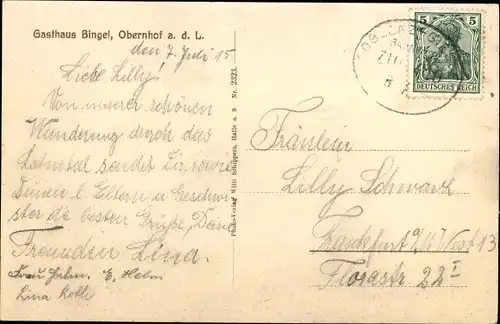 Gasthaus Bingel, Obernhof a. d. L.
den 7. Juli 15
Liebe Lilly!
Von unserer schönen
Wanderung durch das
Lahntal sendet Dir, sowie
Deinen l. Eltern u. Geschwi-
ster die besten Grüße, Deine
Freundin Lina.
Frau Helm. E. Helm
Lina Roth
Photo-Verlag Willi Schippers, Halle a. S Nr. 2323.
5 5
DEUTSCHES REICH
COBLENZ
BAHN
ZUG
8
Fräulein
Lilly Schwarz
Frankfurt a/M West 13
Florastr 22 I